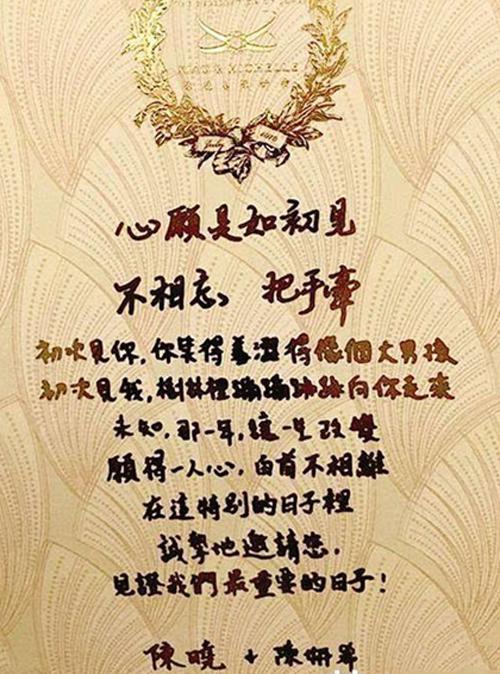 XIAO & MICHELLE
July 2016
心願是如初見
不相忘 把手牽
初次見你,你笑得羞澀得像個大男孩
初次見我,樹林裡蹦蹦跳跳向你走來
未知,那一年,這一生改變
願得一人心,白首不相離
在這特別的日子裡
誠摯地邀請您,
見證我們最重要的日子!
陳曉 + 陳妍希